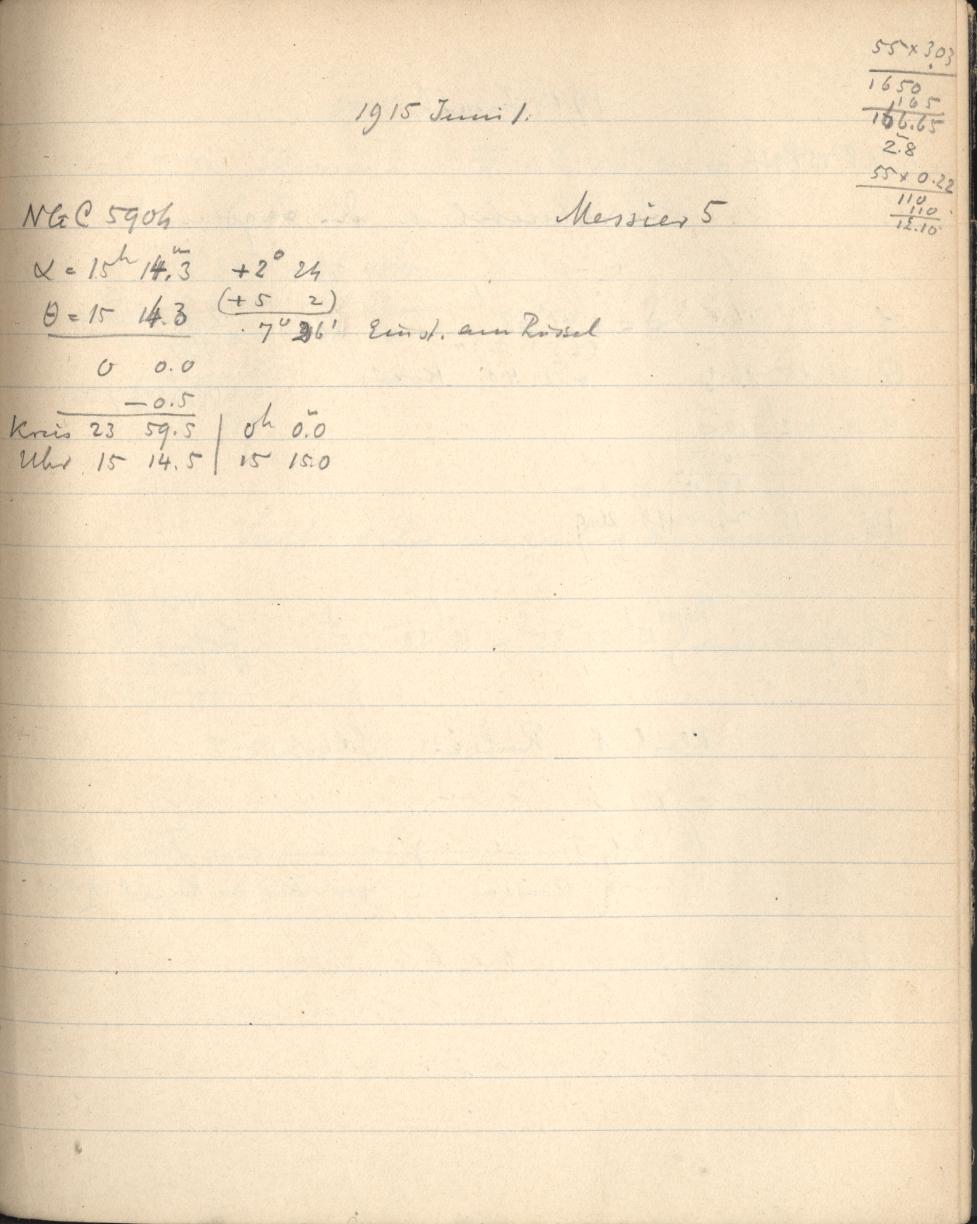 55 × 3.03
1650
165
166.65
2.8
55 × 0.22
110
110
12.10
1915 Juni 1.
NGC 5904 Messier 5
α = 15h 14.m3 +2° 24
θ = 15 14.3 (+5 2)
7° 26' Einst. am
0 0.0
−0.5
Kreis 23 59.5 | 0h 0.m0
Uhr 15 14.5 | 15 15.0